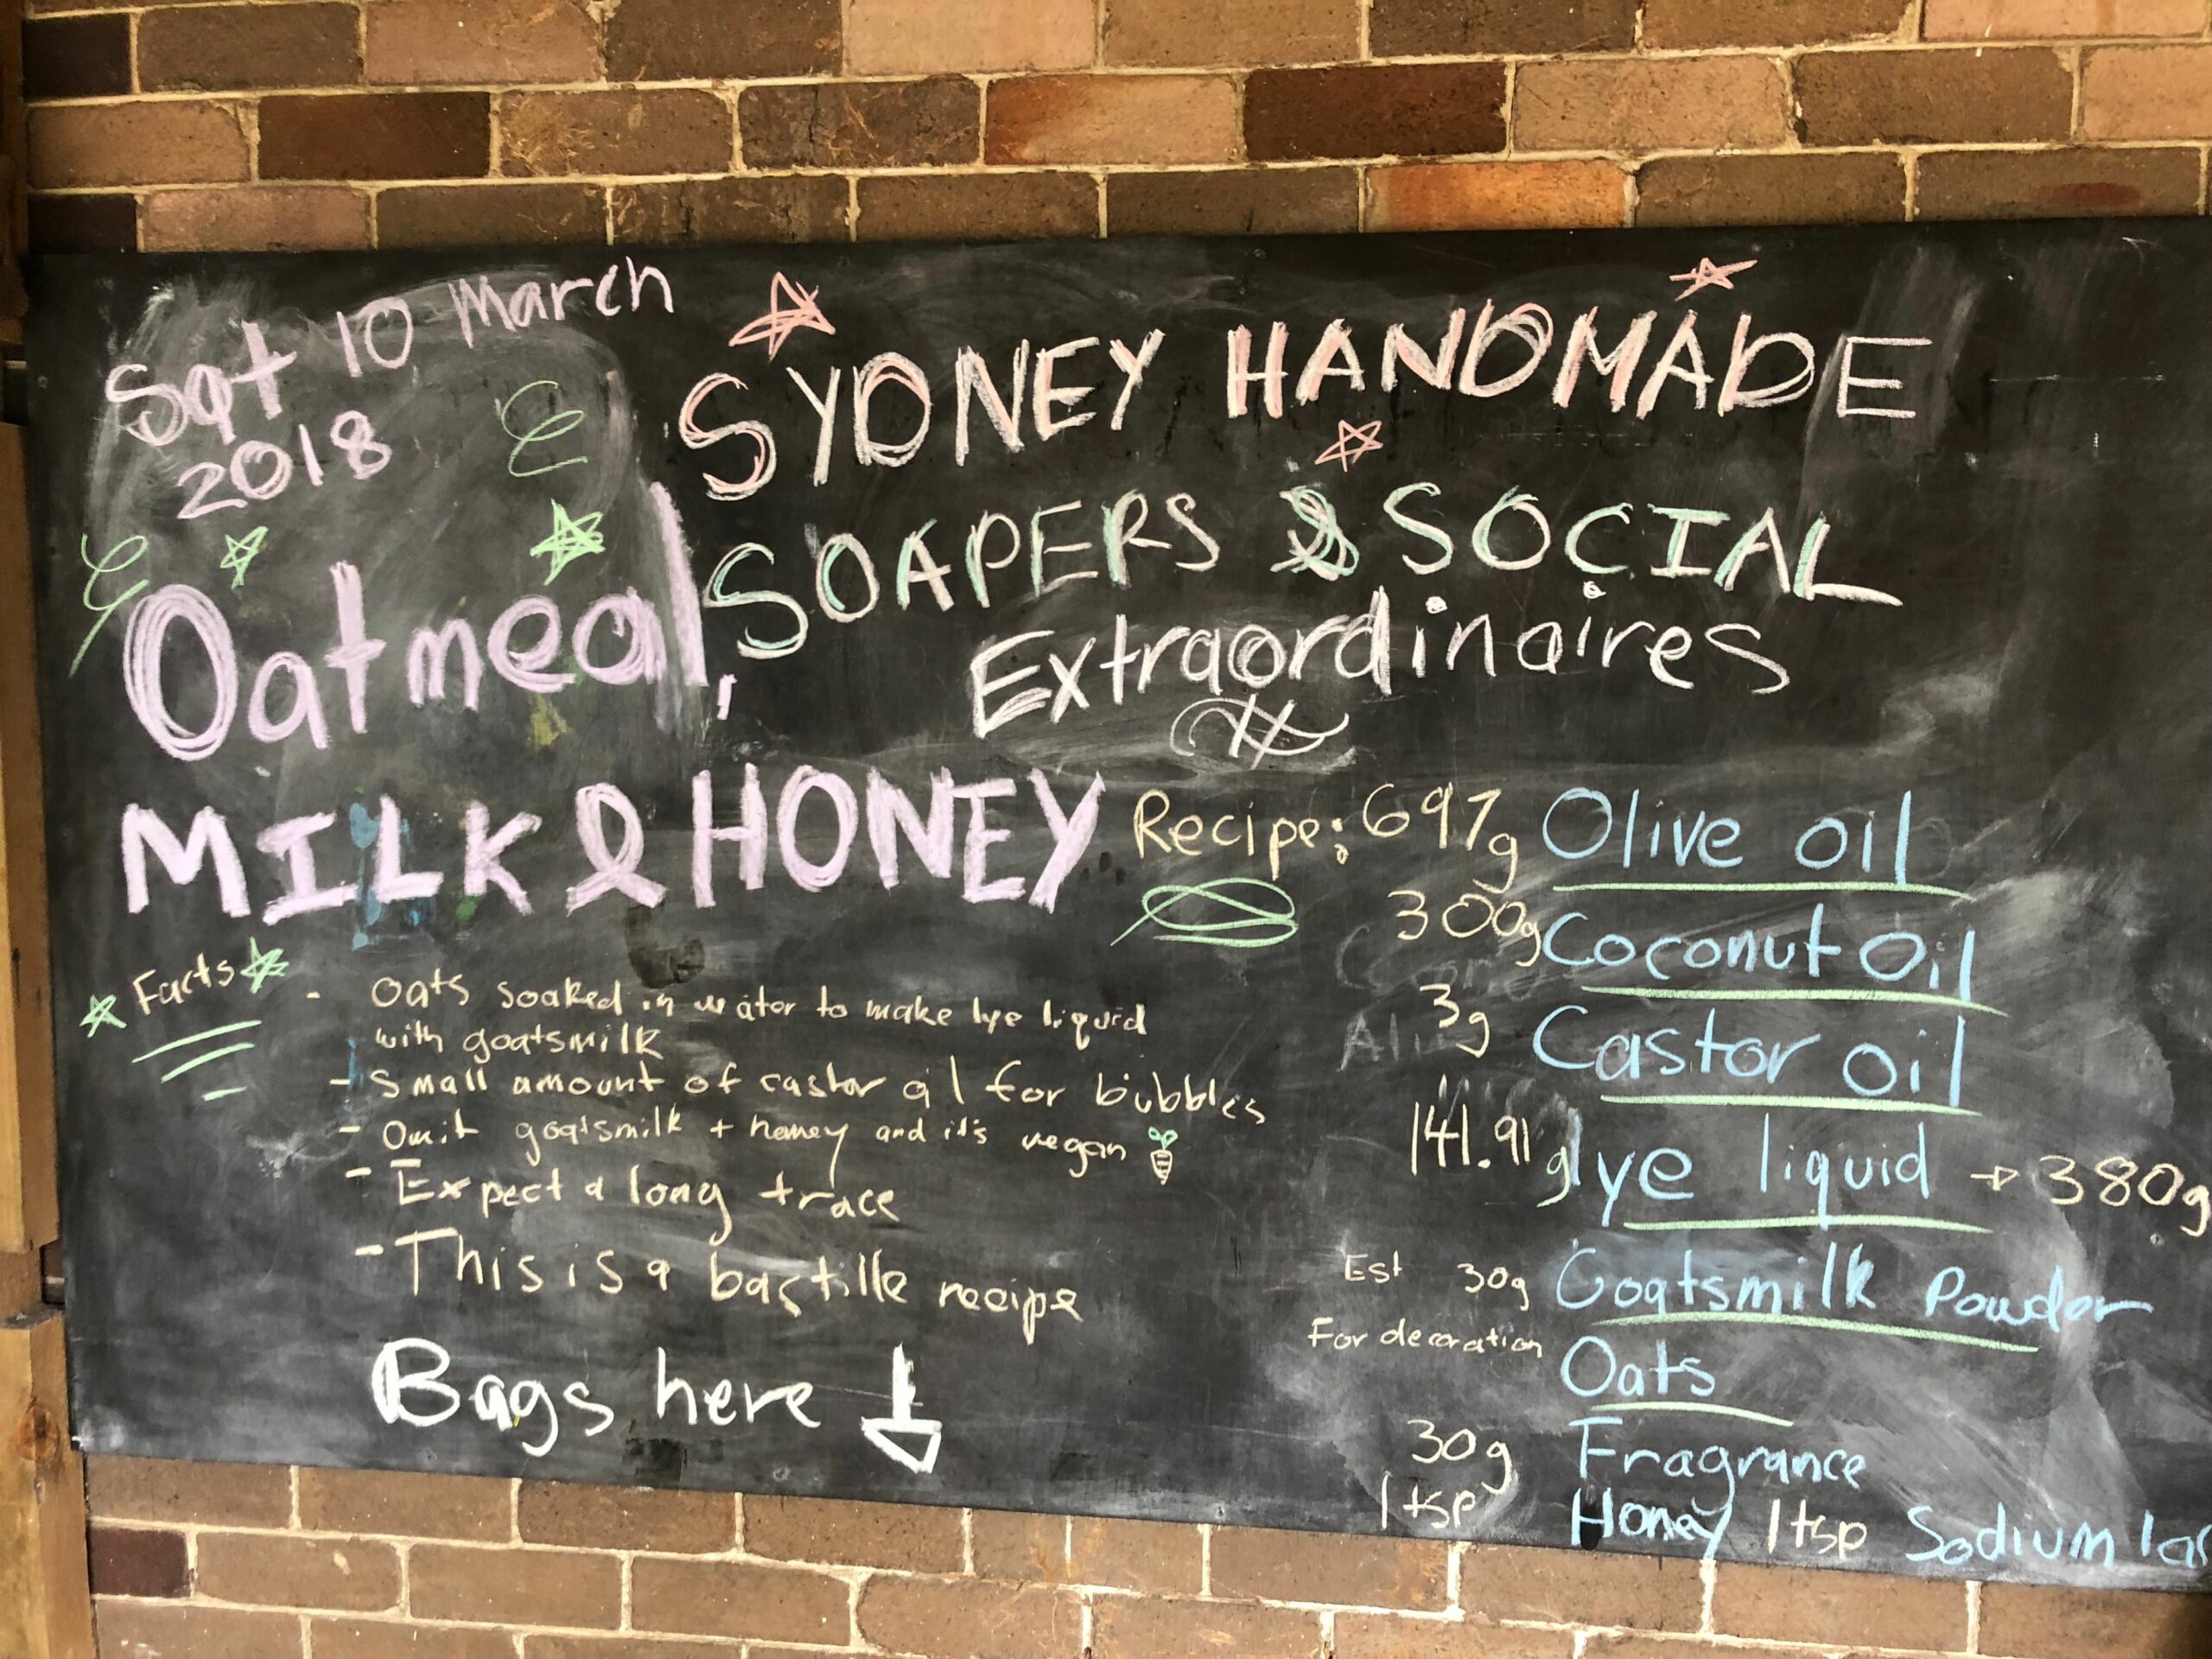 Sat 10 March
2018
SYDNEY HANDMADE
SOAPERS & SOCIAL
Extraordinaires
Oatmeal,
MILK & HONEY
Facts
- Oats soaked in water to make lye liquid
with goatsmilk
- Small amount of castor oil for bubbles
- Omit goatsmilk + honey and it's vegan
- Expect a long trace
- This is a bastille recipe
Bags here
Recipe: 697g Olive oil
300g Coconut Oil
3g Castor oil
141.91 g lye liquid → 380g
Est 30g Goatsmilk Powder
For decoration Oats
30g Fragrance
1 tsp Honey 1 tsp Sodium